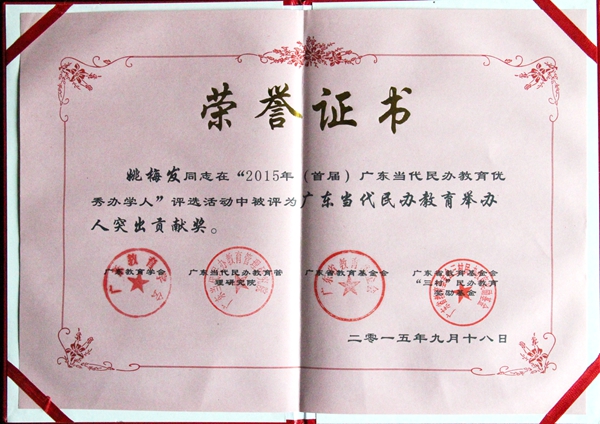 荣誉证书
姚梅发同志在“2015年（首届）广东当代民办教育优
秀办学人”评选活动中被评为广东当代民办教育举办
人突出贡献奖。
广东教育学会
广东当代民办教育管
理研究院
广东省教育基金会
广东省教育基金会
“三村”民办教育
奖励基金
二零一五年九月十八日